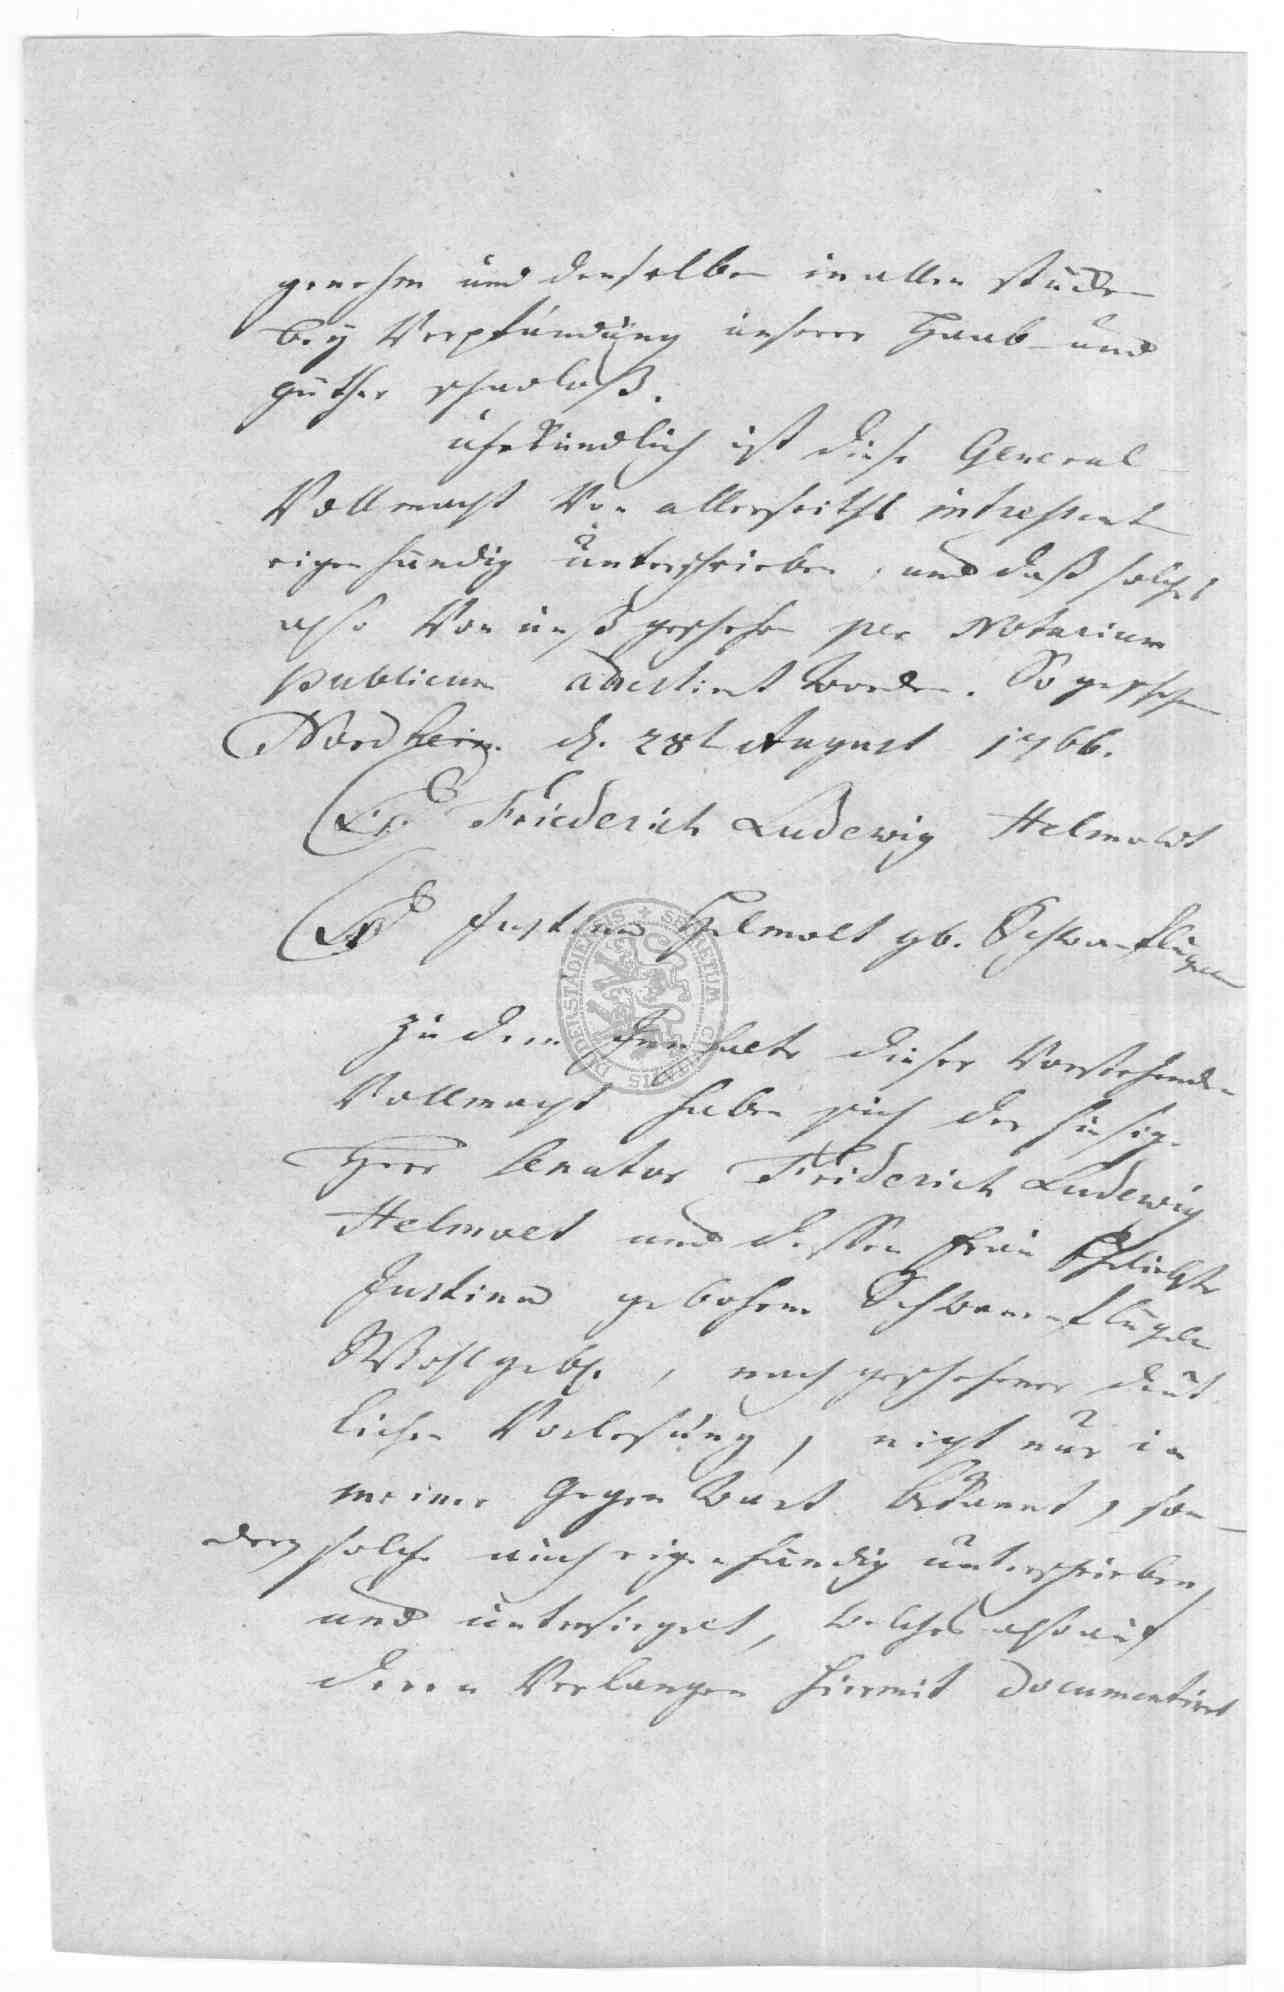 genehm und denselben in allen stücken
bey Verpfändung unserer Haab und
güther schadloß.
Uhrkundlich ist diese General
Vollmacht von allerseiths
eigenhändig unterschrieben, und daß solches
also von unß geschehen per Notarium
publicum attestirt worden. So geschehen
Nordheim. d. 28t August 1766.
Friederich Ludewig Helmoldt
Justina Helmolt gb. Schwanflügeln
Zu dem Innhalte dieser Vorstehenden
Vollmacht haben sich der hiesige
Herr Senator Friderich Ludewig
Helmolt und dessen Frau Eheliebste
Justina gebohrne Schwanenflügeln
Wohlgeb., nach geschehener deut
lichen Vorlesung, nicht nur in
meiner Gegenwart bekannt, son
dern solche auch eigenhändig unterschrieben,
und untersiegelt, welches also auf
deren Verlangen hiermit documentiret
SECRETUM CIVITATIS DUDERSTADIENSIS